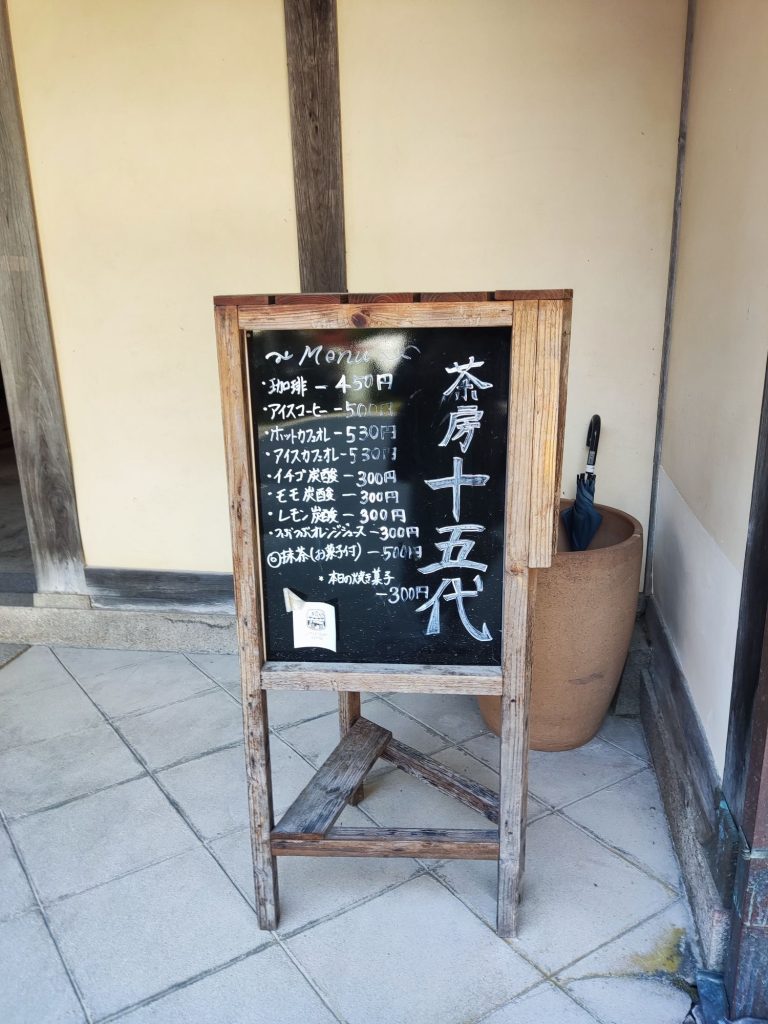 Menu
・珈琲 - 450円
・アイスコーヒー - 500円
・ホットカフェオレ - 530円
・アイスカフェオレ - 530円
・イチゴ炭酸 - 300円
・モモ炭酸 - 300円
・レモン炭酸 - 300円
・つぶつぶオレンジジュース - 300円
抹茶(お菓子付) - 500円
*本日の焼き菓子
- 300円
茶房十五代